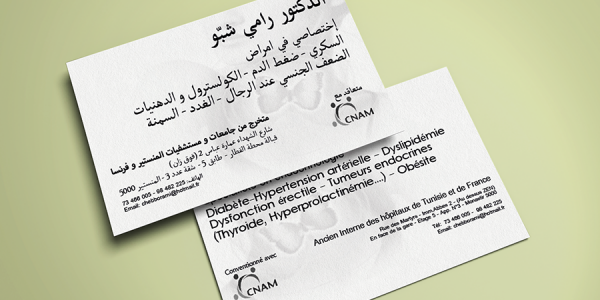 الدكتور رامي شبّو
إختصاصي في امراض
السكري - ضغط الدم - الكولسترول و الدهنيات
الضعف الجنسي عند الرجال - الغدد - السمنة
متعاقد مع
CNAM
متخرج من جامعات و مستشفيات المنستير و فرنسا
شارع الشهداء عمارة عباس 2 (فوق زان)
قبالة محطة القطار - طابق 5 - شقة عدد 3 - المنستير 5000
الهاتف: 73 486 005 - 98 482 225
Email: chebborami@hotmail.fr
Diabète-Hypertension artérielle - Dyslipidémie
Dysfonction érectile - Tumeurs endocrines
(Thyroide, Hyperprolactinémie...) - Obésite
Ancien Interne des hôpitaux de Tunisie et de France
Rue des Martyrs - Imm.Abbes 2 - (Au dessus ZEN)
En face de la gare - Etage 5 - App. N°3 - Monastir 5000
Tél: 73 486 005 - 98 482 225
Email: chebborami@hotmail.fr
Conventionné avec
CNAM